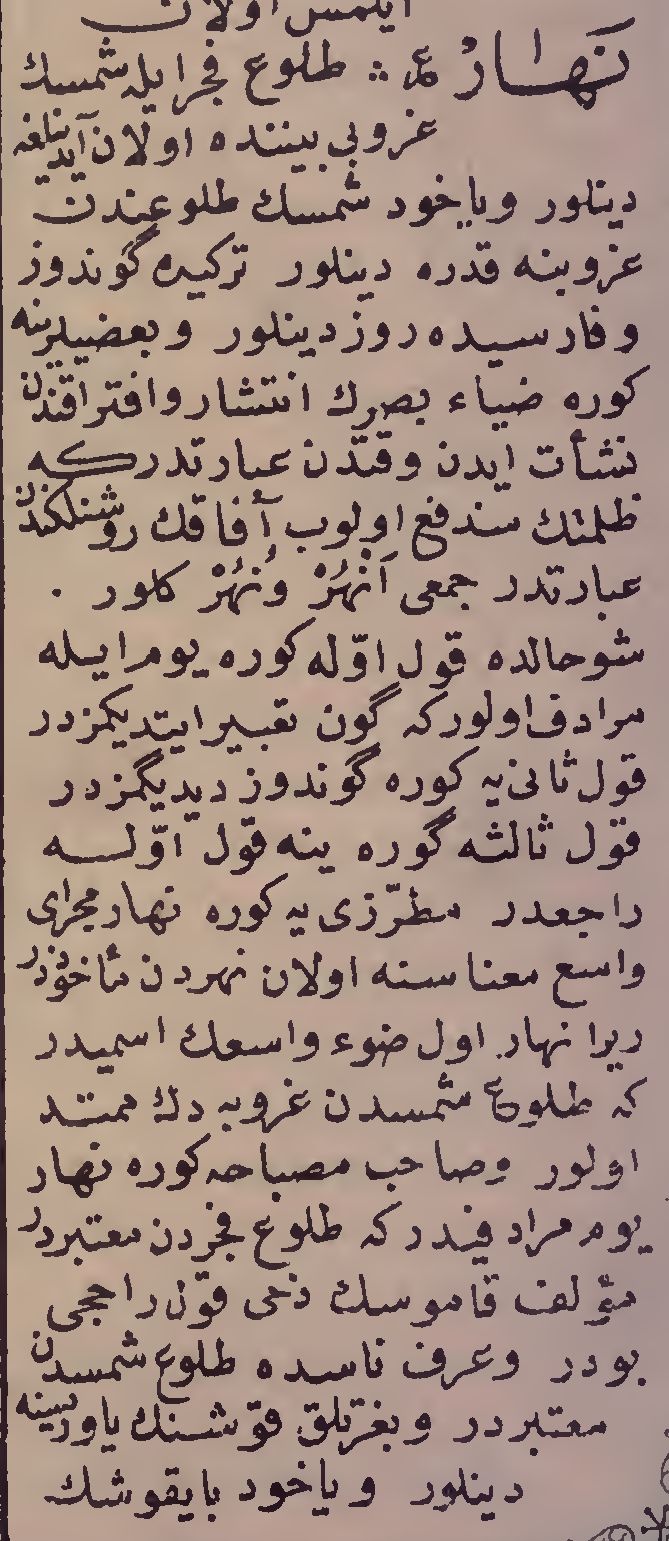 ایلمس اولان
نَهَارْ ع ؞ طلوع فجر ایله شمسك
غروبی بیننده اولان آیدینلغه
دینلور ویاخود شمسك طلوعندن
غروبنه قدره دینلور ترکیده گوندوز
وفارسیده روز دینلور وبعضیلرینه
کوره ضیاء بصرك انتشار وافتراقندن
نشأت ایدن وقتدن عبارتدرکه
ظلمتك مندفع اولوب آفاقك روشنلكندن
عبارتدر جمعی اَنْهُرْ ونُهُرْ کلور .
شو حالده قول اوّله کوره یوم ایله
مرادف اولورکه گون تعبیر ایتدیکمزدر
قول ثانی‌یه کوره گوندوز دیدیگمزدر
قول ثالثه گوره ینه قول اوّلسه
راجعدر مطرّزی یه کوره نهار مجرای
واسع معناسنه اولان نهردن مأخوذدر
زیرا نهار اول ضوء واسعك اسمیدر
که طلوع شمسدن غروبه دك ممتد
اولور وصاحب مصباحه کوره نهار
یوم مرادفیدر که طلوع فجردن معتبردر
مؤلف قاموسك دخی قول راجحی
بودر وعرف ناسده طلوع شمسدن
معتبردر وبغرتلق قوشنك یاوریسنه
دینلور ویاخود بایقوشك